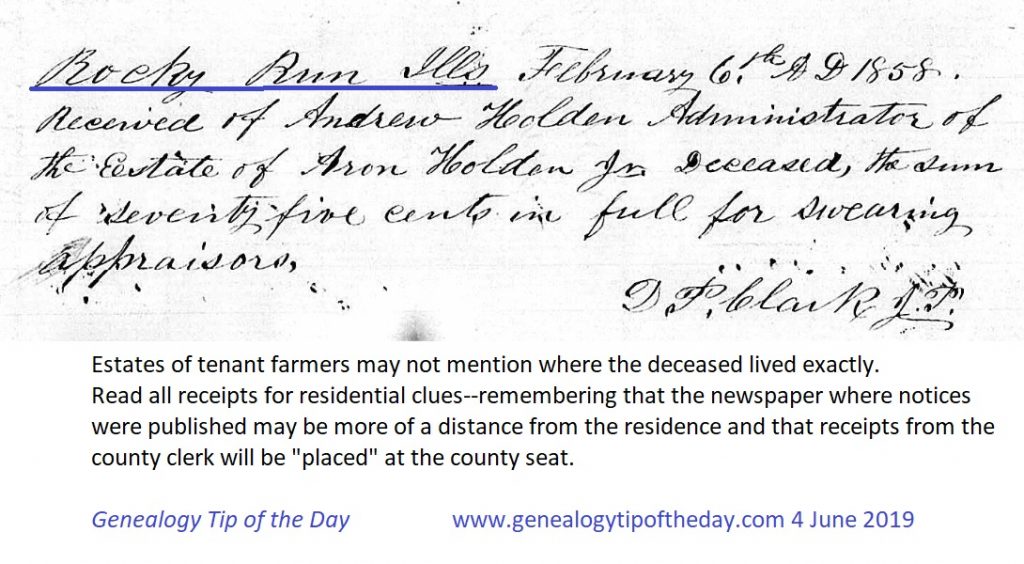 Rocky Run Ills February 6.th A D 1858.
Received of Andrew Holden Administrator of
the Estate of Aron Holden Jr Deceased, the sum
of seventy five cents in full for swearing
appraisors,
D. P. Clark J.P.
Estates of tenant farmers may not mention where the deceased lived exactly.
Read all receipts for residential clues--remembering that the newspaper where notices
were published may be more of a distance from the residence and that receipts from the
county clerk will be "placed" at the county seat.
Genealogy Tip of the Day www.genealogytipoftheday.com 4 June 2019